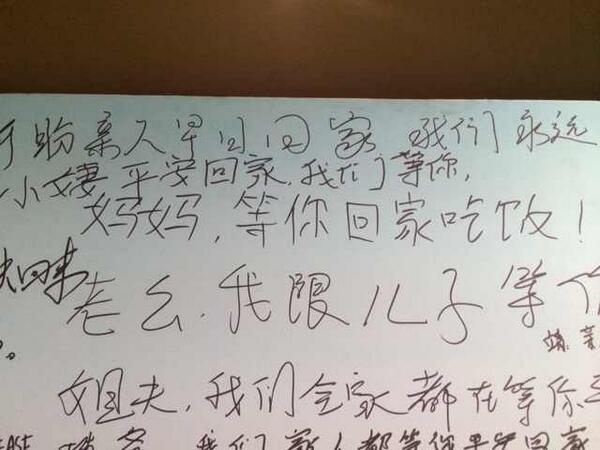 盼亲人早日回家 我们永远
平安回家,我们等你,
妈妈,等你回家吃饭!
回来
老公.我跟儿子等你
姐夫,我们全家都在等你
我们家人都等你平安回家